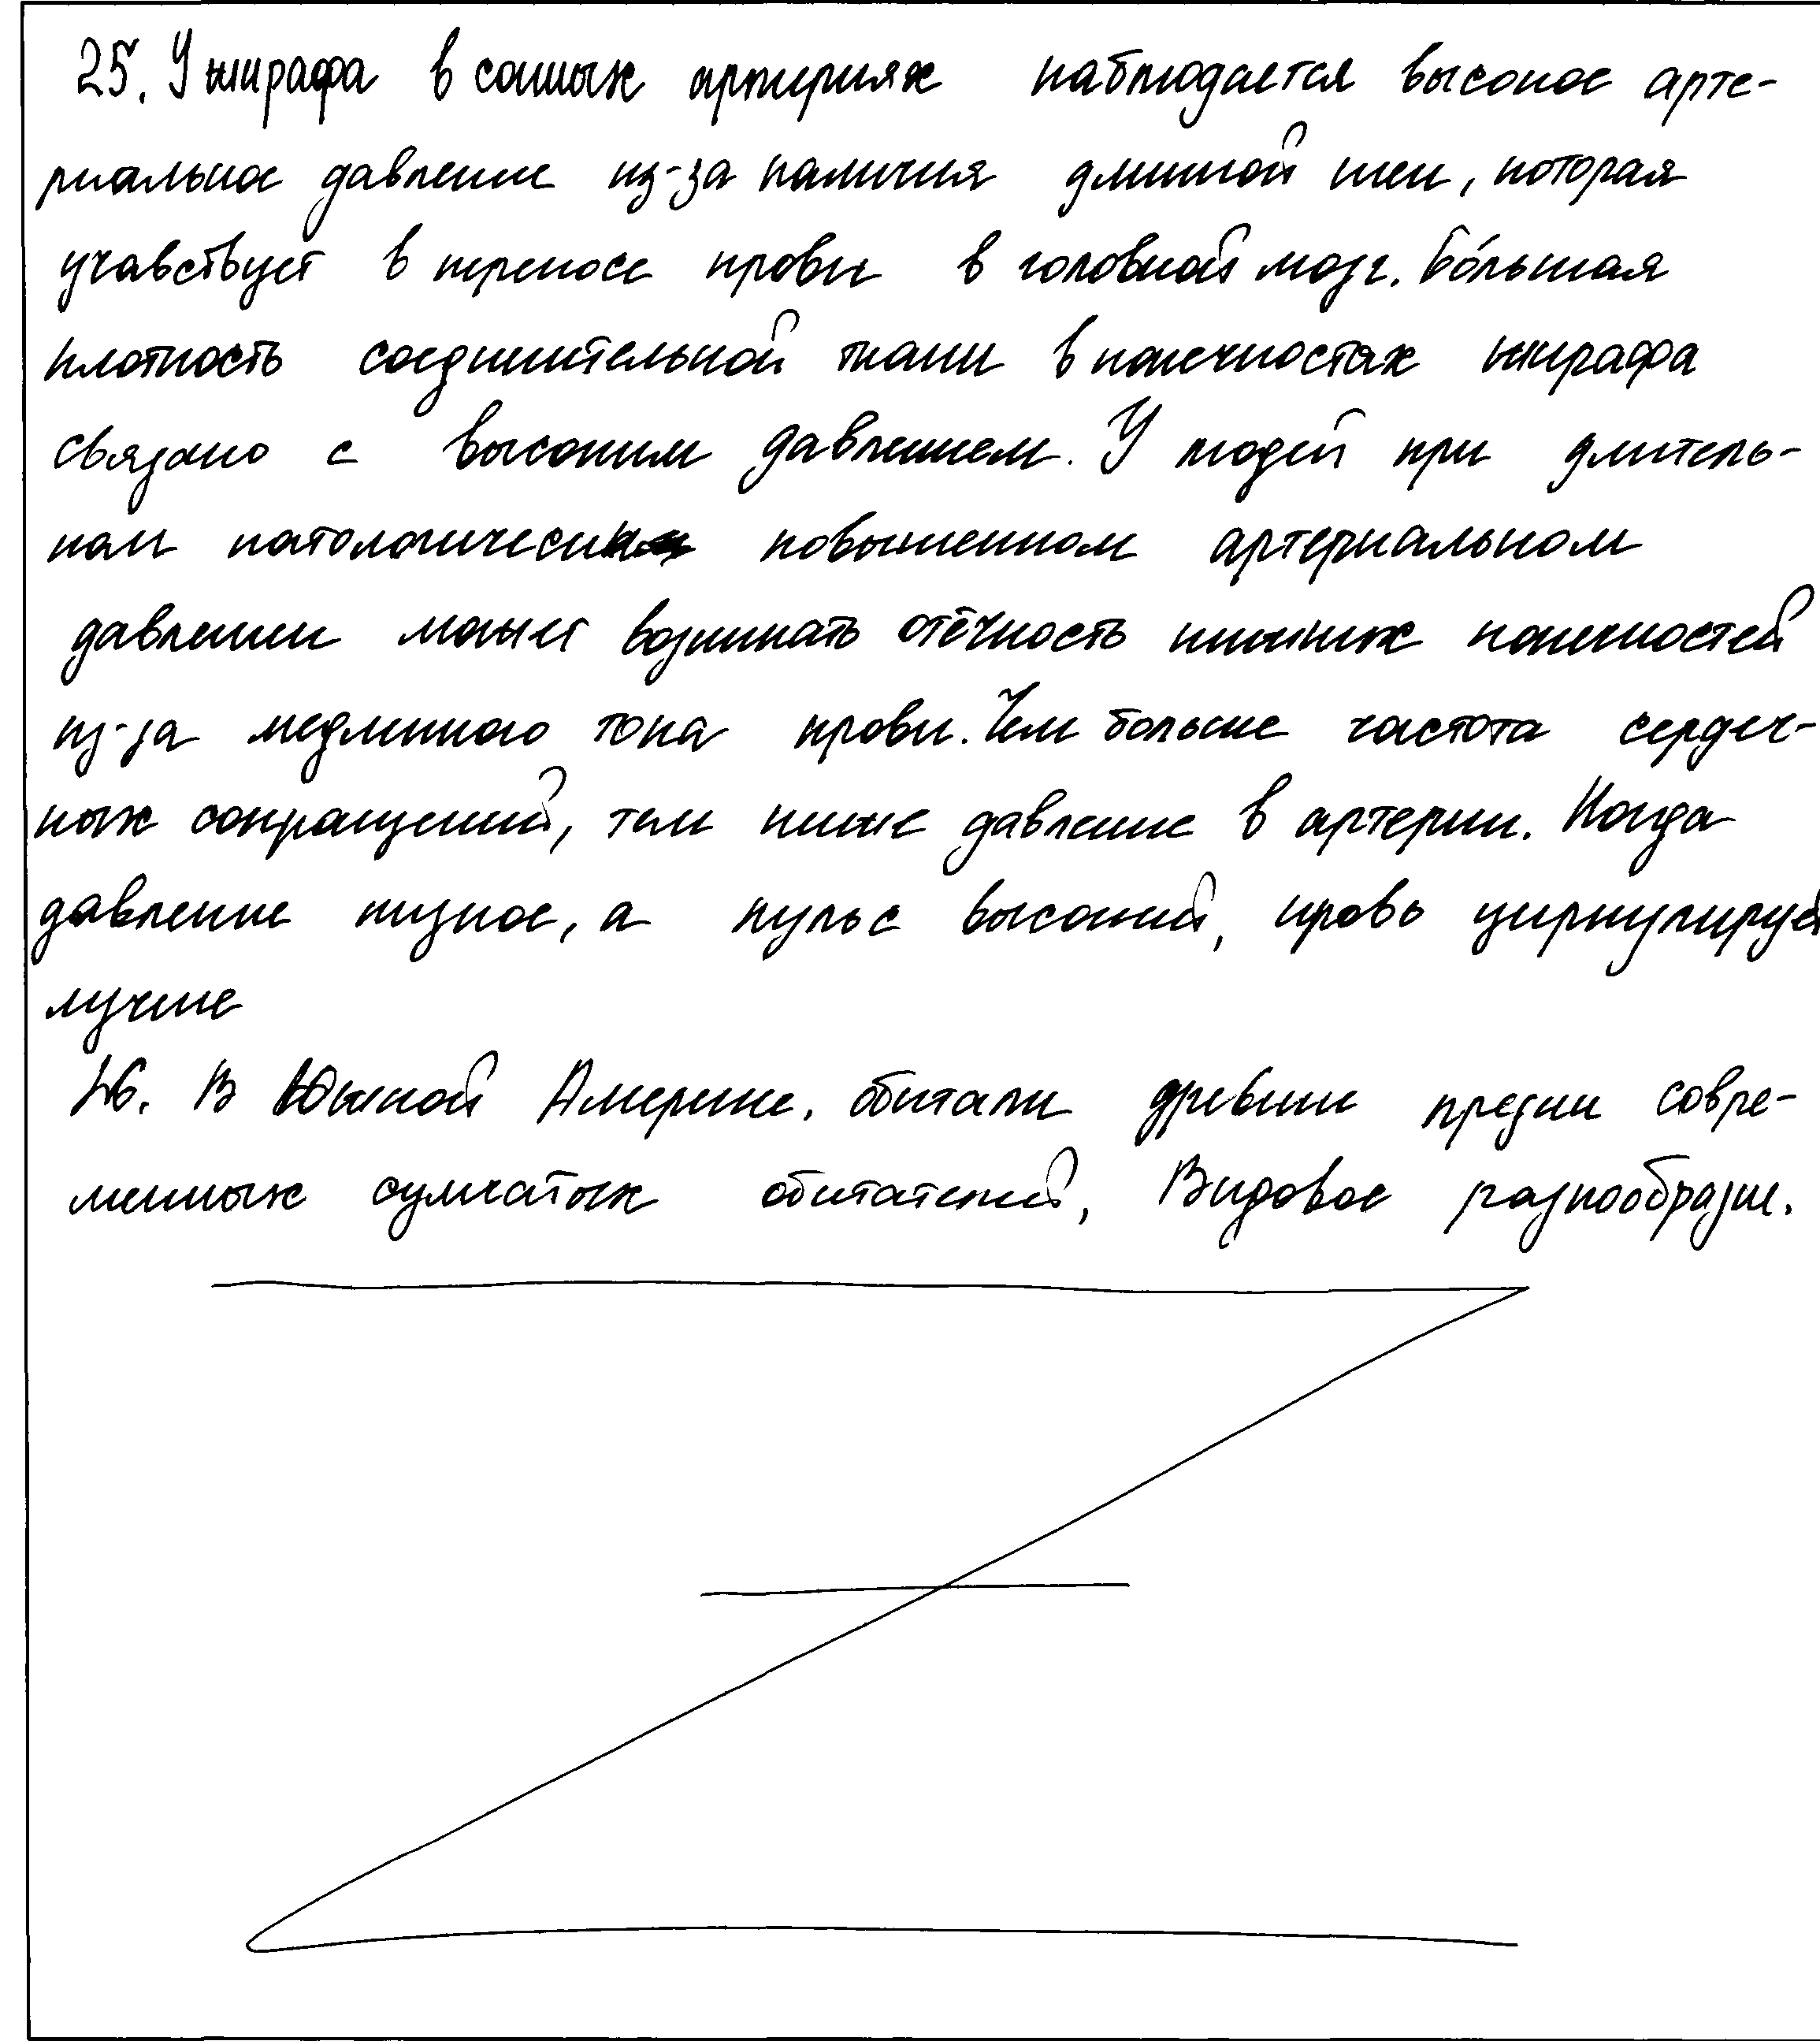 25. У жирафа в сонных артериях наблюдается высокое арте-
риальное давление из-за наличия длинной шеи, которая
учавствует в переносе крови в головной мозг. Бо́льшая
плотность соединительной ткани в конечностях жирафа
связано с высоким давлением. У людей при длитель-
ном патологически повышенном артериальном
давлении может возникать отёчность нижних конечностей
из-за медленного тока крови. Чем больше частота сердеч-
ных сокращений, тем ниже давление в артерии. Когда
давление низкое, а пульс высокий, кровь циркулирует
лучше
26. В Южной Америке, обитали древнии предки совре-
менных сумчатых обитателей, Видовое разнообразие.